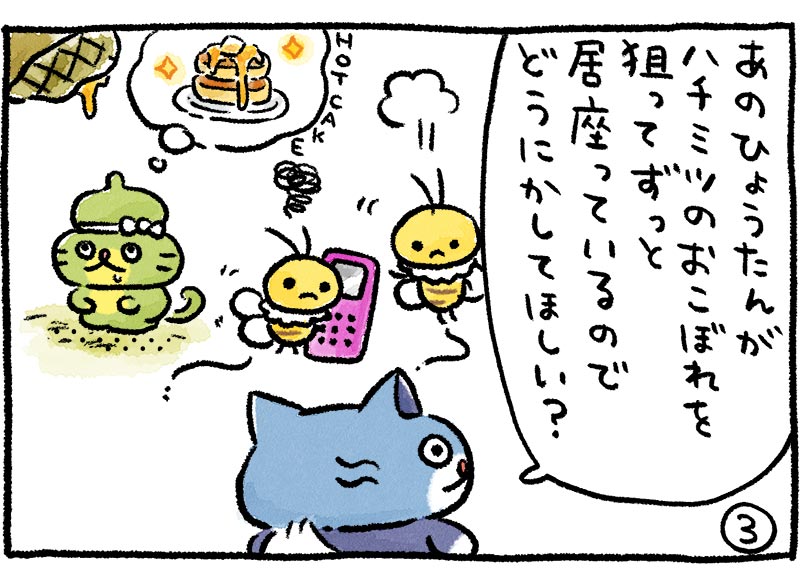 あのひょうたんが
ハチミツのおこぼれを
狙ってずっと
居座っているので
どうにかしてほしい？
HOT CAKE
③